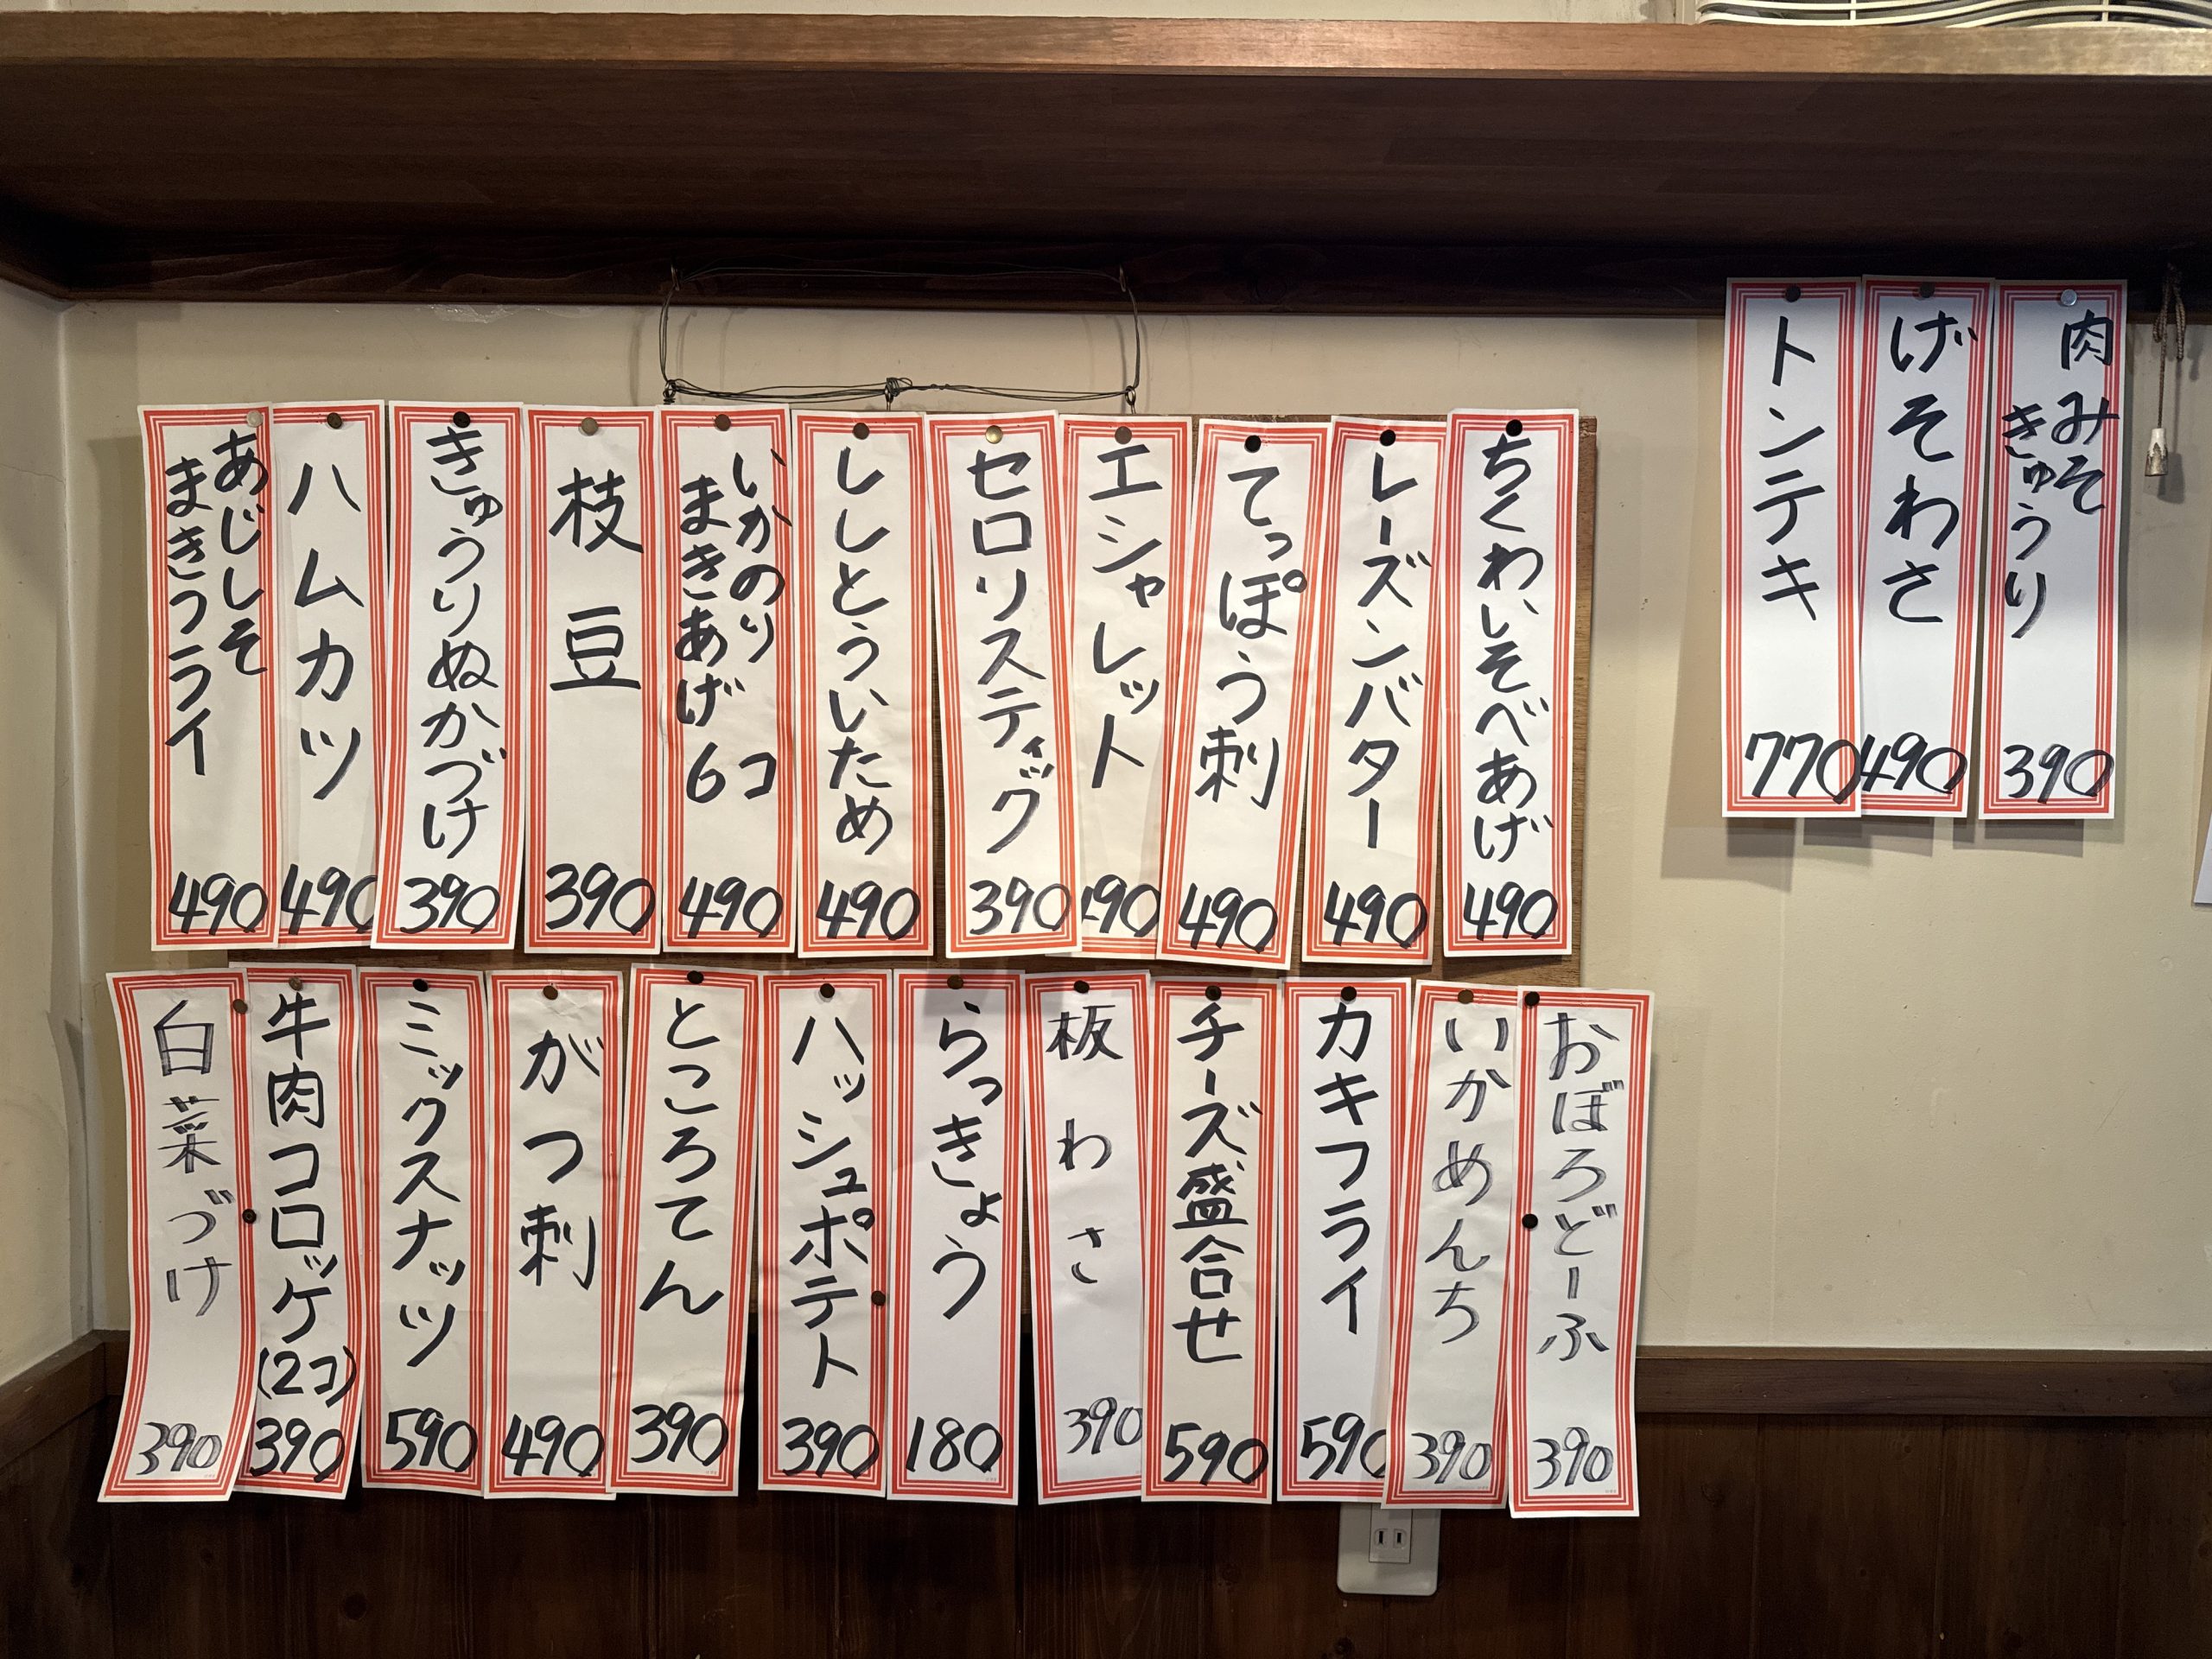 肉みそ
きゅうり
390
げそわさ
490
トンテキ
770
ちくわ、しそべあげ
490
レーズンバター
490
てっぽう刺
490
エシャレット
490
セロリスティック
390
ししとういため
490
いかのり
まきあげ
6コ
490
枝豆
390
きゅうりぬかづけ
390
ハムカツ
490
あじしそ
まきフライ
490
おぼろどーふ
390
いかめんち
390
カキフライ
590
チーズ盛合せ
590
板わさ
390
らっきょう
180
ハッシュポテト
390
ところてん
390
がつ刺
490
ミックスナッツ
590
牛肉コロッケ
(2コ)
390
白菜づけ
390